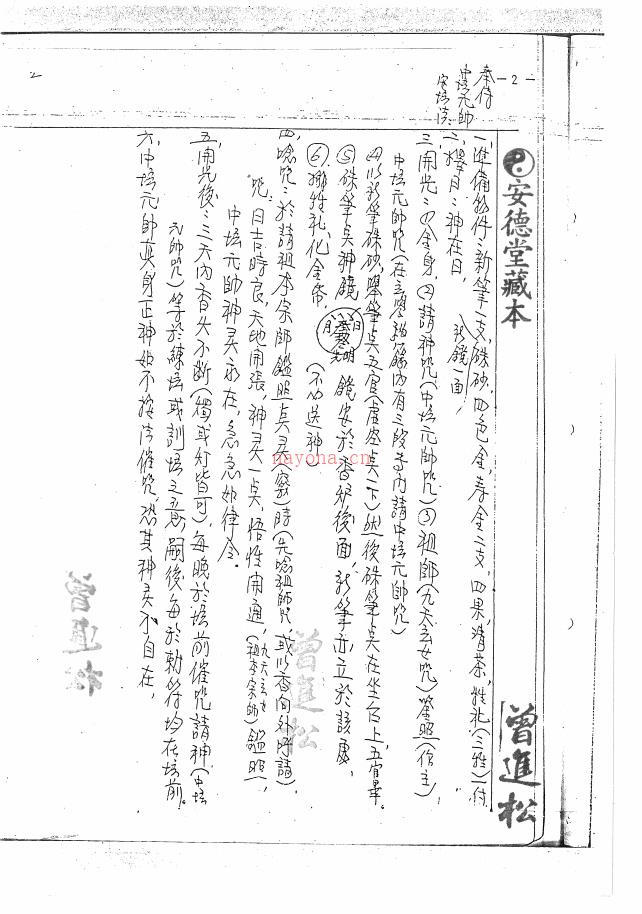 -2-
2
安德堂藏本
曾進松
奉付
中壇元帥
安壇法
一、準備物件：新筆一支，硃砂，四色金，壽金二支，四果，清茶，牲礼（三牲）一付
新鏡一面，
二、擇日：神在日，
三、開光：①金身，②請神咒（中壇元帥咒）③祖師（九天玄女咒）鑒照（作主）
中壇元帥咒（在 內有三段 內請中壇元帥咒）
④以新筆硃砂，舉筆点五官（虛空点一下）然後硃筆点在坐石上，五官畢。
⑤硃筆点神鏡 鏡安於香炉後面，新筆亦立於該處，
日 月 明
⑥ 牲礼，化金帛，（不必送神）
四、唸咒：於請祖本宗師鑑照点灵察時（先唸祖師咒，或以香向外呼請），
咒：日吉時良，天地開張，神灵一点，悟性開通，（九天玄女 祖本宗師）鑑照，
中壇元帥神灵永在，急急如律令。
五、開光後：三天內香火不斷（燭或灯皆可）每晚於壇前催咒請神（中壇
元帥咒）等於練壇或訓壇之意，嗣後每於勅符均在壇前。
六、中壇元帥真身正神如不按法催咒，恐其神灵不自在，
曾進松
曾進松
nayona.cn